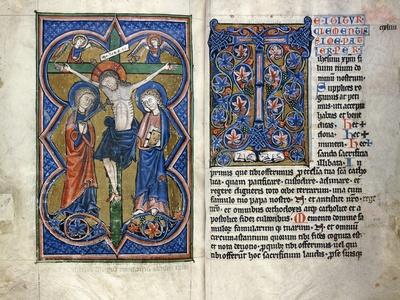 E IGITUR
CLEMENTIS
SIME PAT
ER PER
ihesum xpm fi
lium tuum do
minum nostrum.
Supplices ro
gamus ac peti
mus uti accepta
habeas et bene
dicas. hec
dona. hec
munera. hec
sancta sacrificia
illibata. In
primis que tibi offerimus p ecclia tua sca catho
lica. quam pacificare. custodire. adunare. et
regere digneris toto orbe terrarum. una cum
famulo tuo papa nostro. N. et antistite nro. rege
nro. et omnibus orthodoxis atq catholice et a
postolice fidei cultoribus. Memento domine fa
mulor famularum q tuarum. N. et omnium
circumastantium quorum tibi fides cognita est
et nota deuotio. p quibus tibi offerimus uel qui
tibi offerunt hoc sacrificium laudis. p se suisq